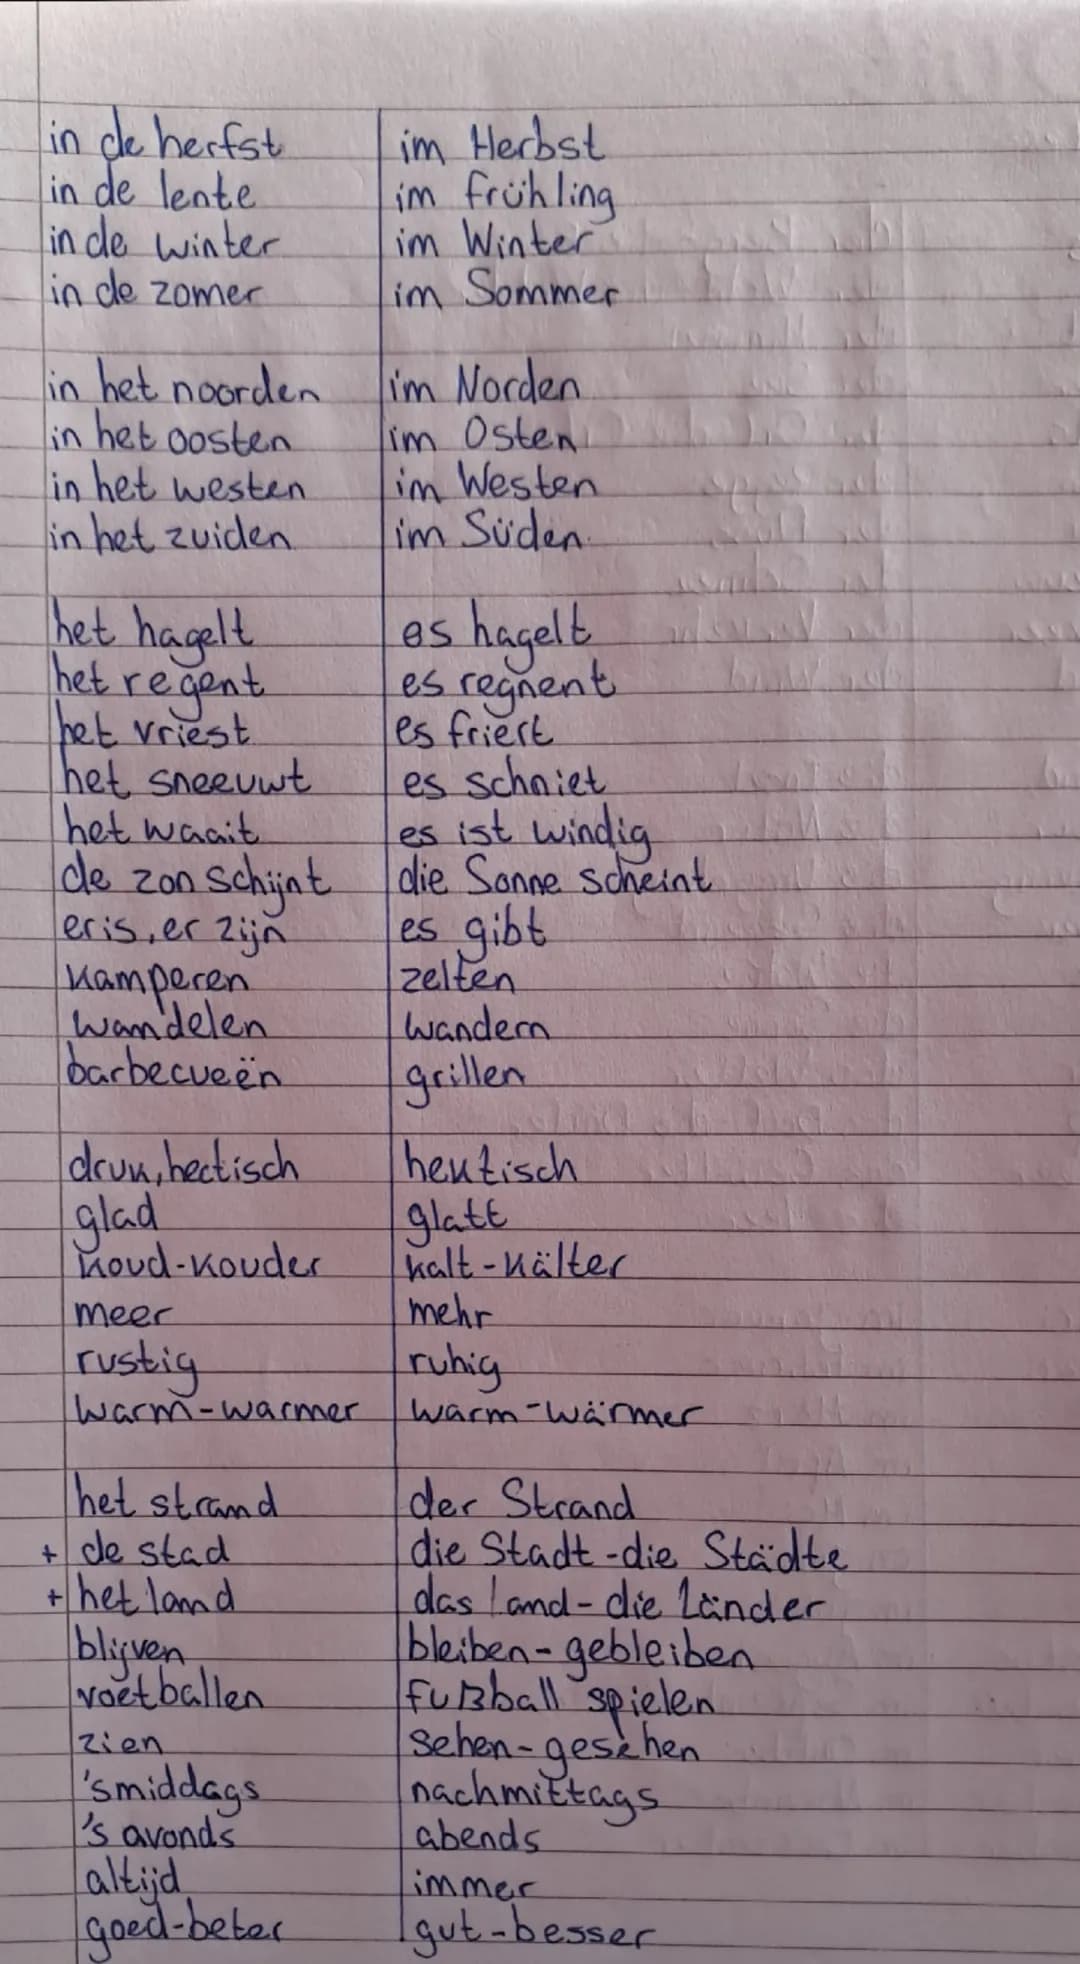 in de herfst im Herbst
in de lente im frühling
in de winter im Winter
in de zomer im Sommer
in het noorden im Norden
in het oosten im Osten
in het westen im Westen
in het zuiden im Süden
het hagelt es hagelt
het regent es regnent
het vriest es friert
het sneeuwt es schniet
het waait es ist windig
de zon schijnt die Sonne scheint
er is, er zijn es gibt
kamperen zelten
wandelen wandern
barbecueën grillen
druk, hectisch hektisch
glad glatt
koud-kouder kalt-kälter
meer mehr
rustig ruhig
warm-warmer warm-wärmer
het strand der Strand
+ de stad die Stadt-die Städte
+ het land das land-die Länder
blijven bleiben-gebleiben
voetballen fußball spielen
zien sehen-gesehen
'smiddags nachmittags
's avonds abends
altijd immer
goed-beter gut-besser